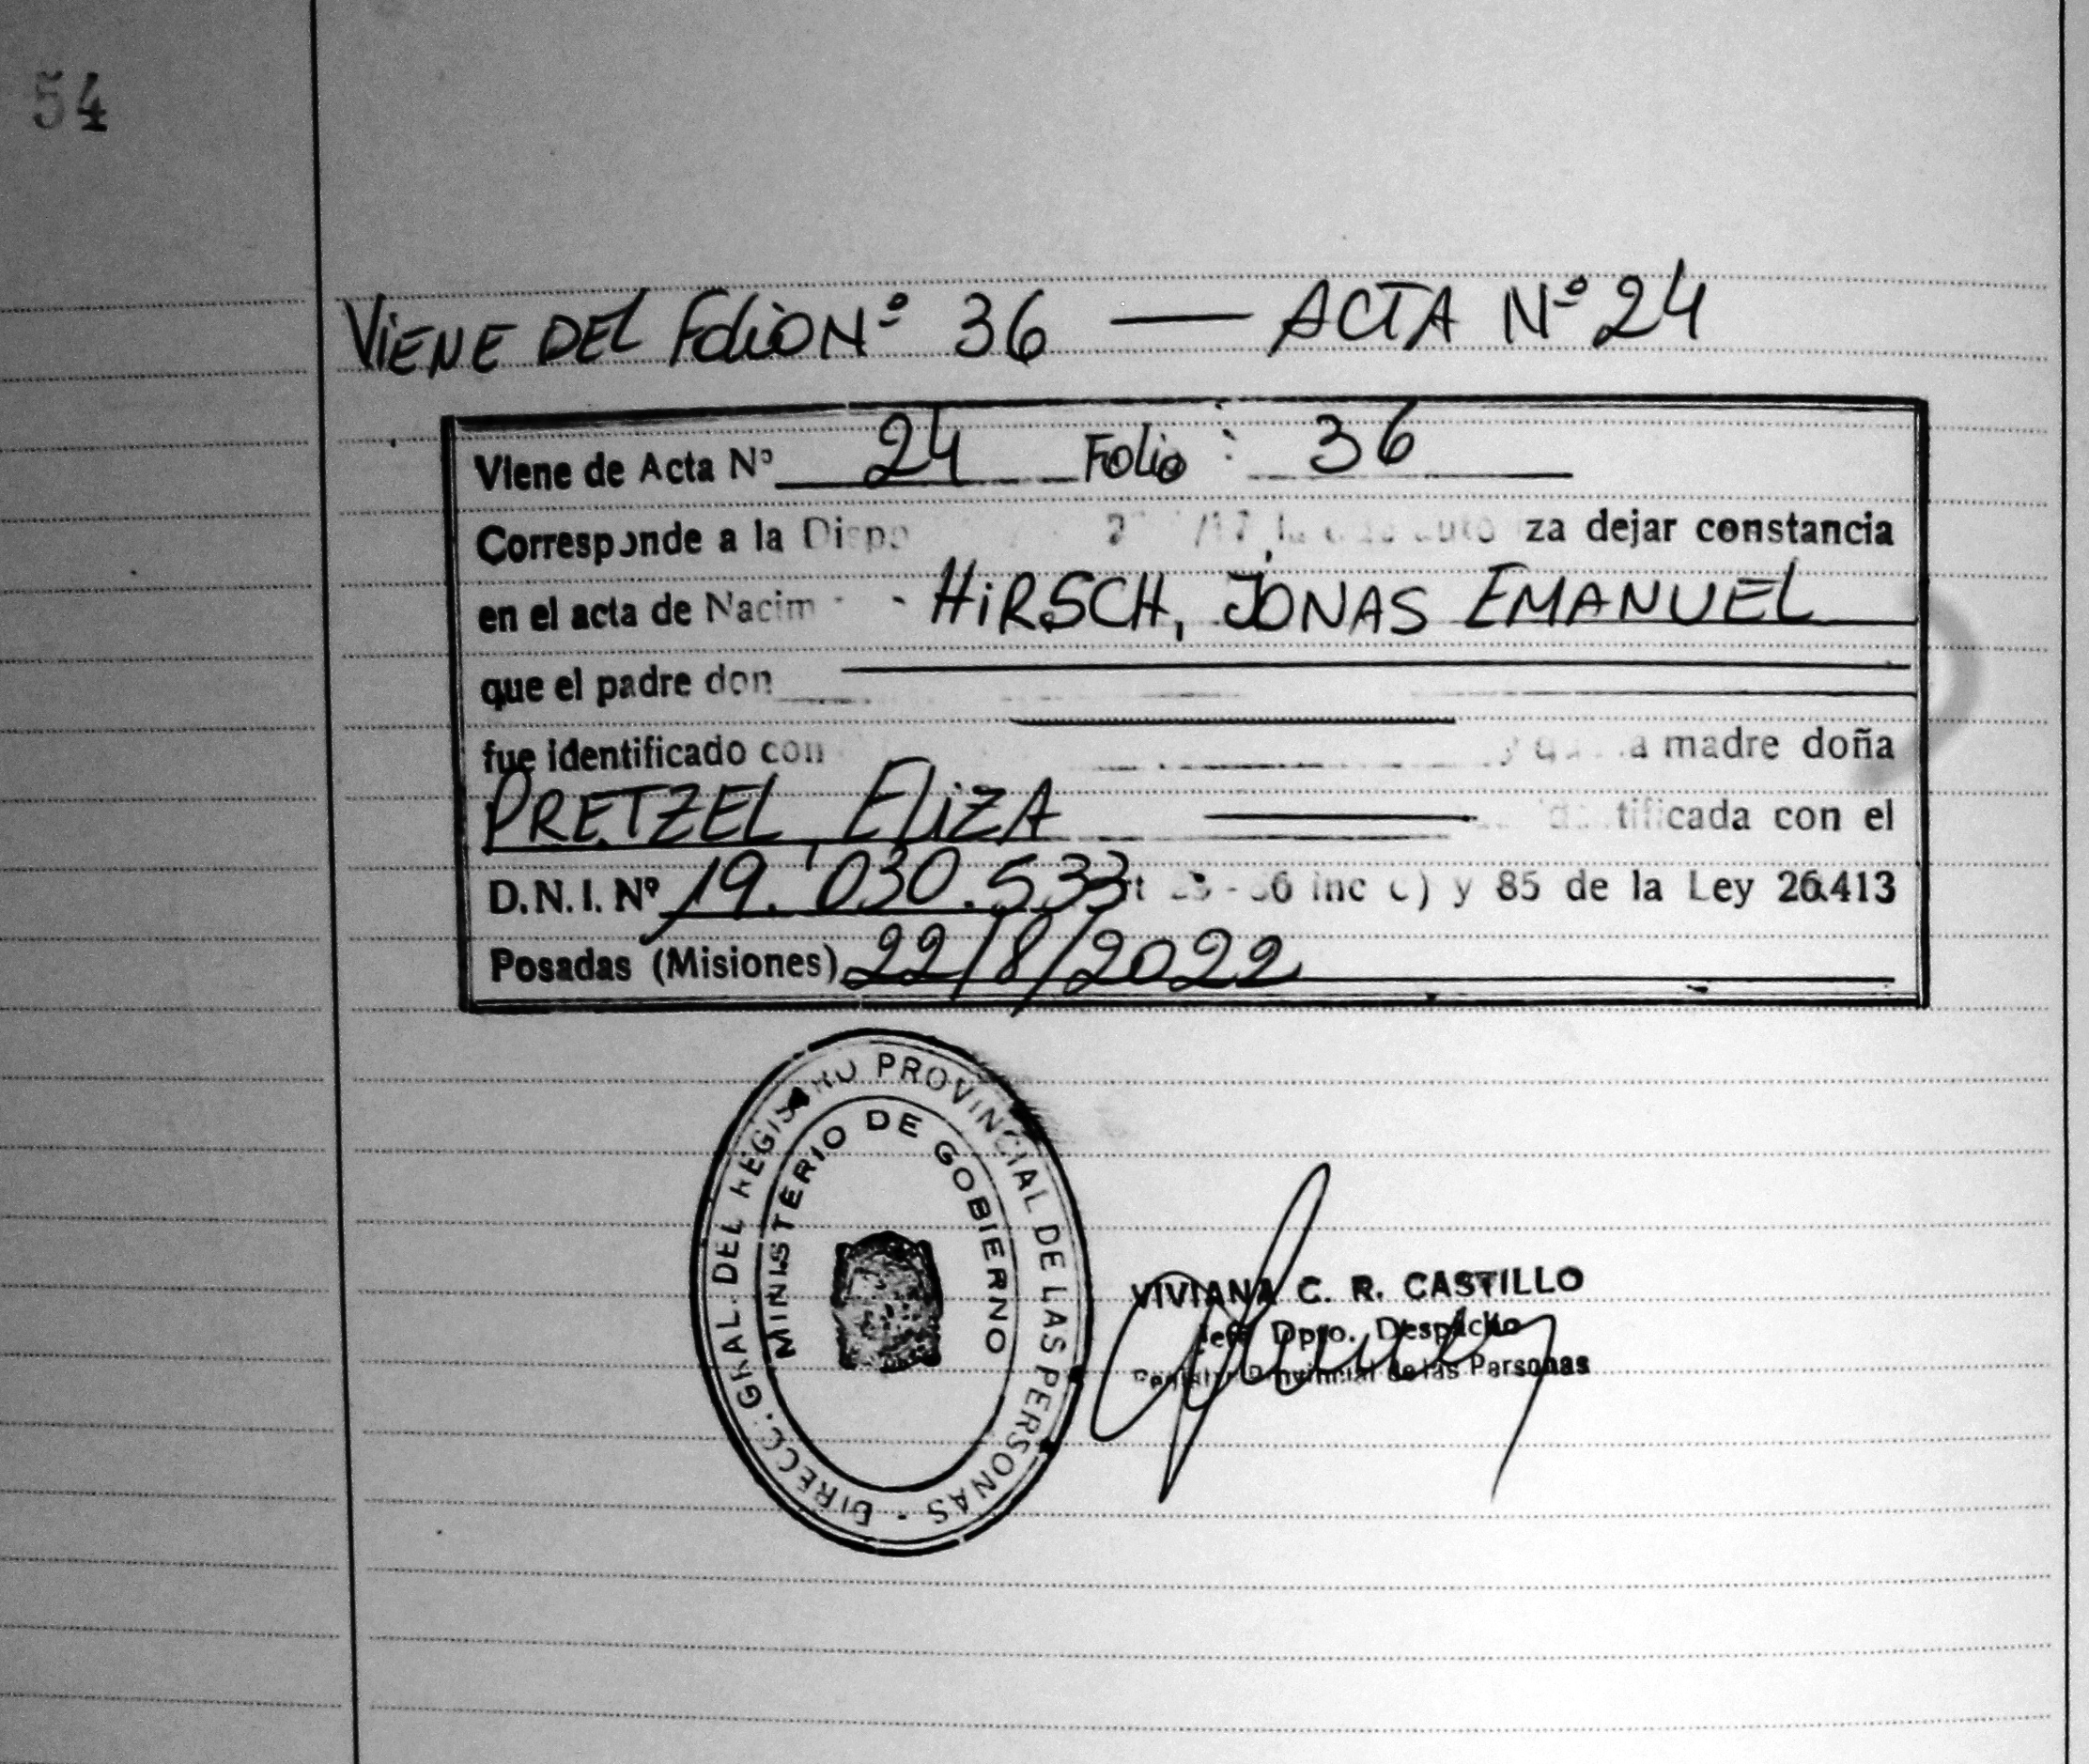 54
ViENE DEL FoliO Nº 36 — ACTA Nº 24
Viene de Acta Nº 24 Folio : 36
Corresponde a la Dispo /17 za dejar constancia
en el acta de Nacim HiRSCH, JONAS EMANUEL
que el padre don
fue identificado con madre doña
PRETZEL, EliZA tificada con el
D.N.I. Nº 19.030.533 inc c) y 85 de la Ley 26.413
Posadas (Misiones) 22/8/2022
DIRECC. GRAL. DEL REGISTRO PROVINCIAL DE LAS PERSONAS -
MINISTERIO DE GOBIERNO
VIVIANA C. R. CASTILLO
Jefe Dpto. Despacho
Registro Provincial de las Personas